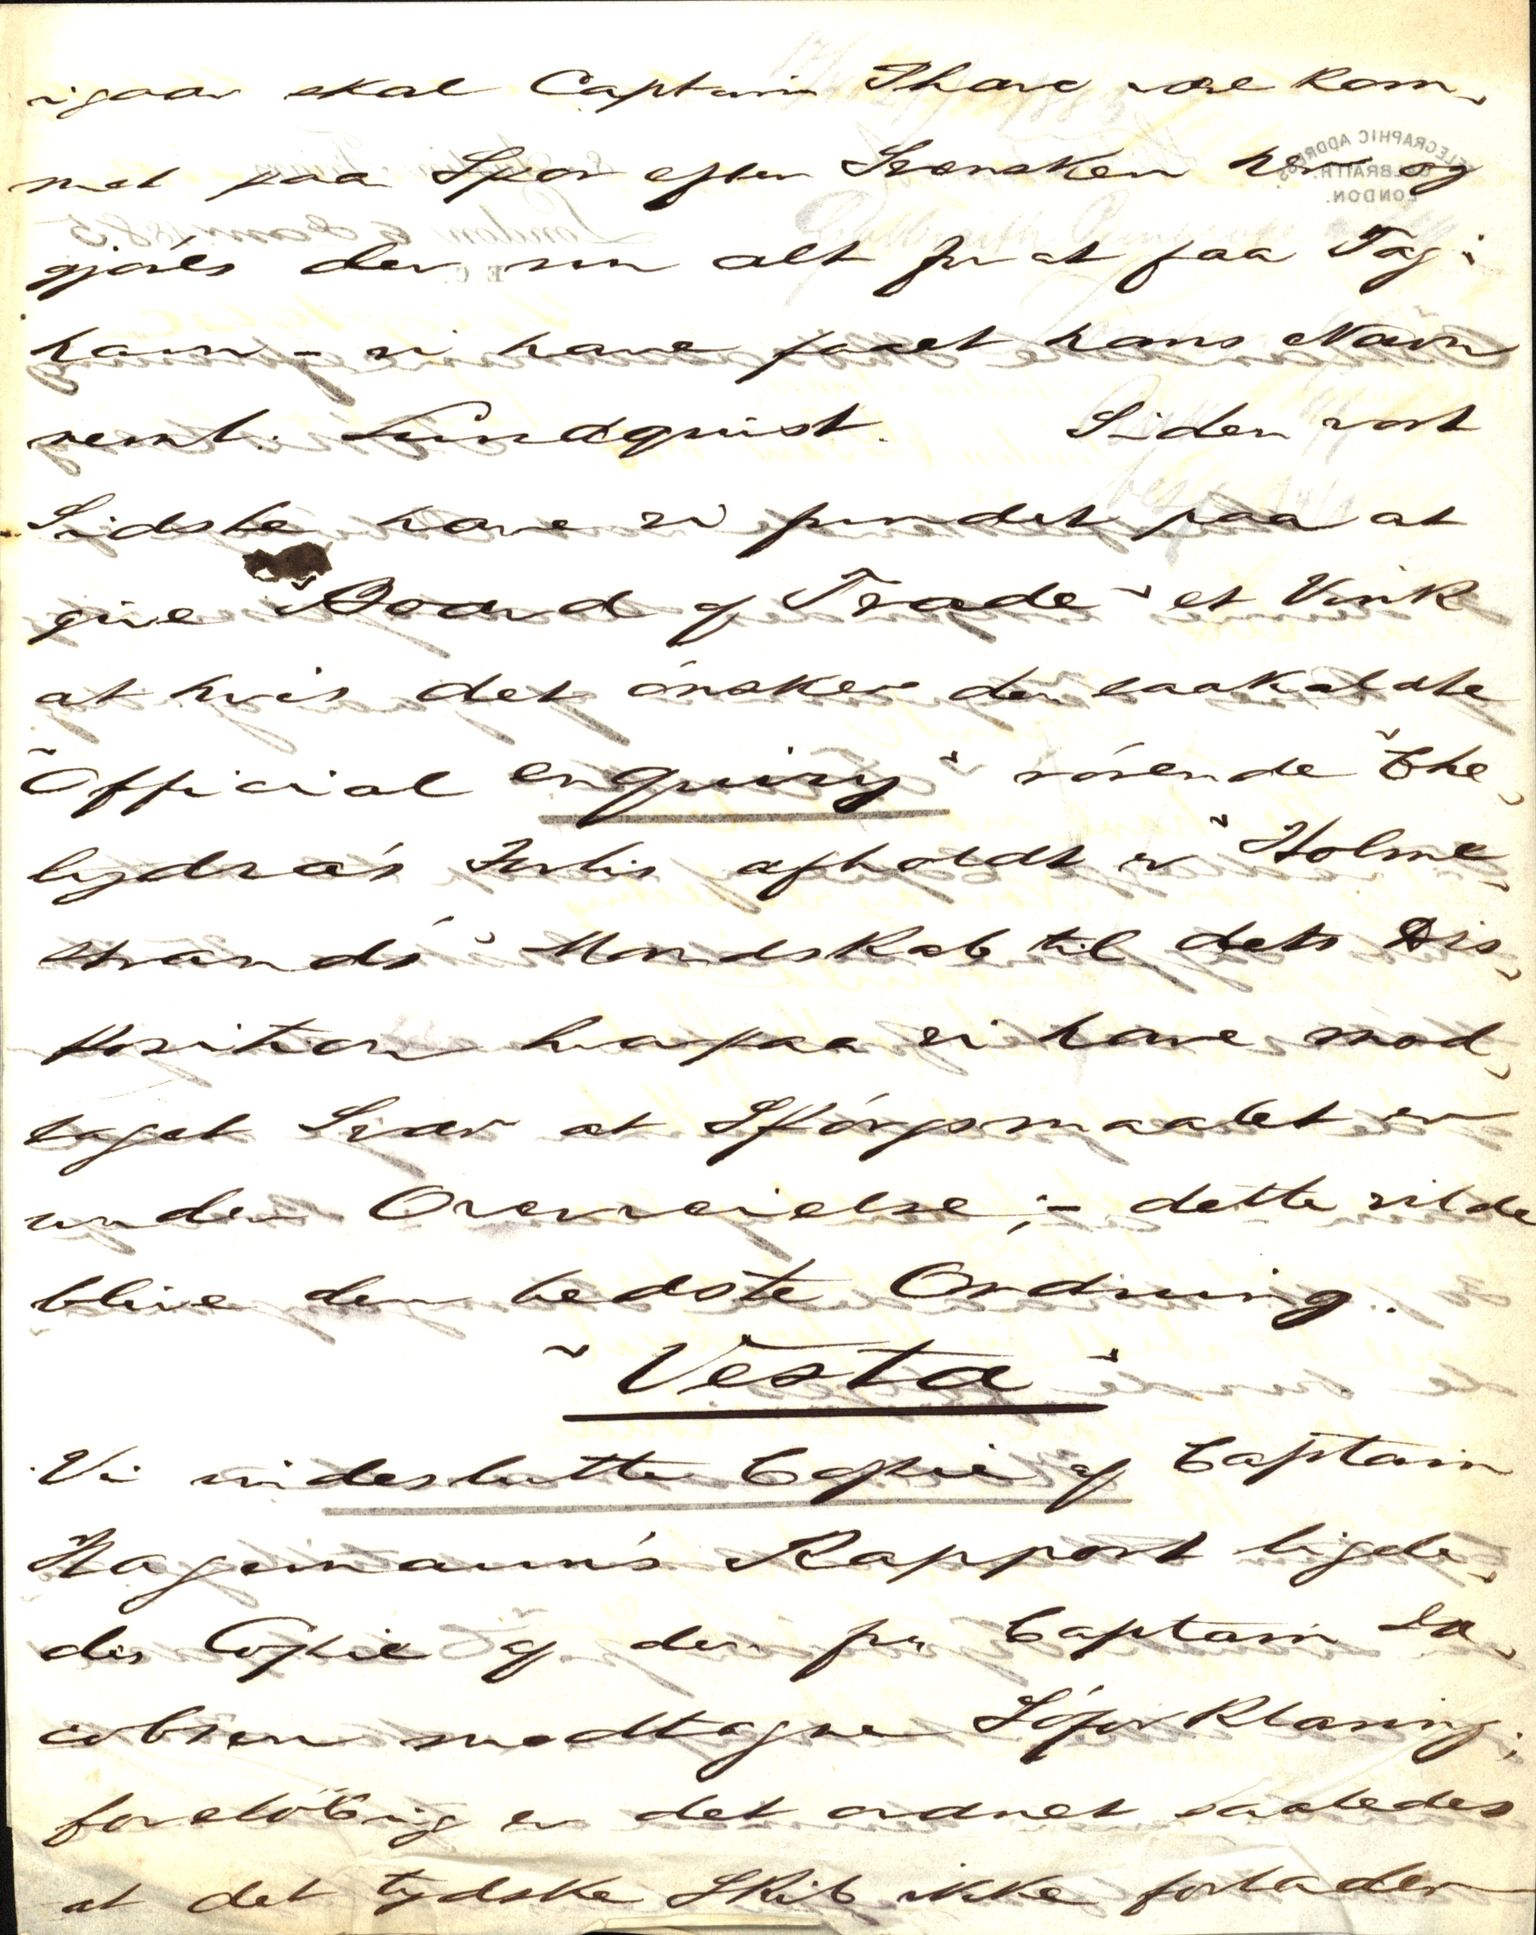 igaar skal Captain Thore være kom-
met paa Spor efter Svensken her og
gjøres der nu alt for at faa Tag i
ham – vi have faaet hans Navn
neml. Lundquist. Siden vort
Sidste have vi fundet paa at
give "Board of Trade" et Vink
at hvis det ønsker den saakaldte
"Official enquiry" rørende "Che-
lydra's Forlis afholdt er "Holme-
strands" Mandskab til dets Dis-
position hvorpaa vi have mod-
taget Svar at Spørgsmaalet er
under Overveielse; – dette vilde
blive den bedste Ordning.
"Vesta"
Vi indeslutte Copie af Captain
Hagemann's Rapport ligele-
des Copie af den fra Captain Ja-
cobsen modtagne Søforklaring;
foreløbig er det ordnet saaledes
at det tydske Skib ikke forlader
TELEGRAPHIC ADDRESS
GALBRAITH.
LONDON.
London 6 Jan 1885
E.C.